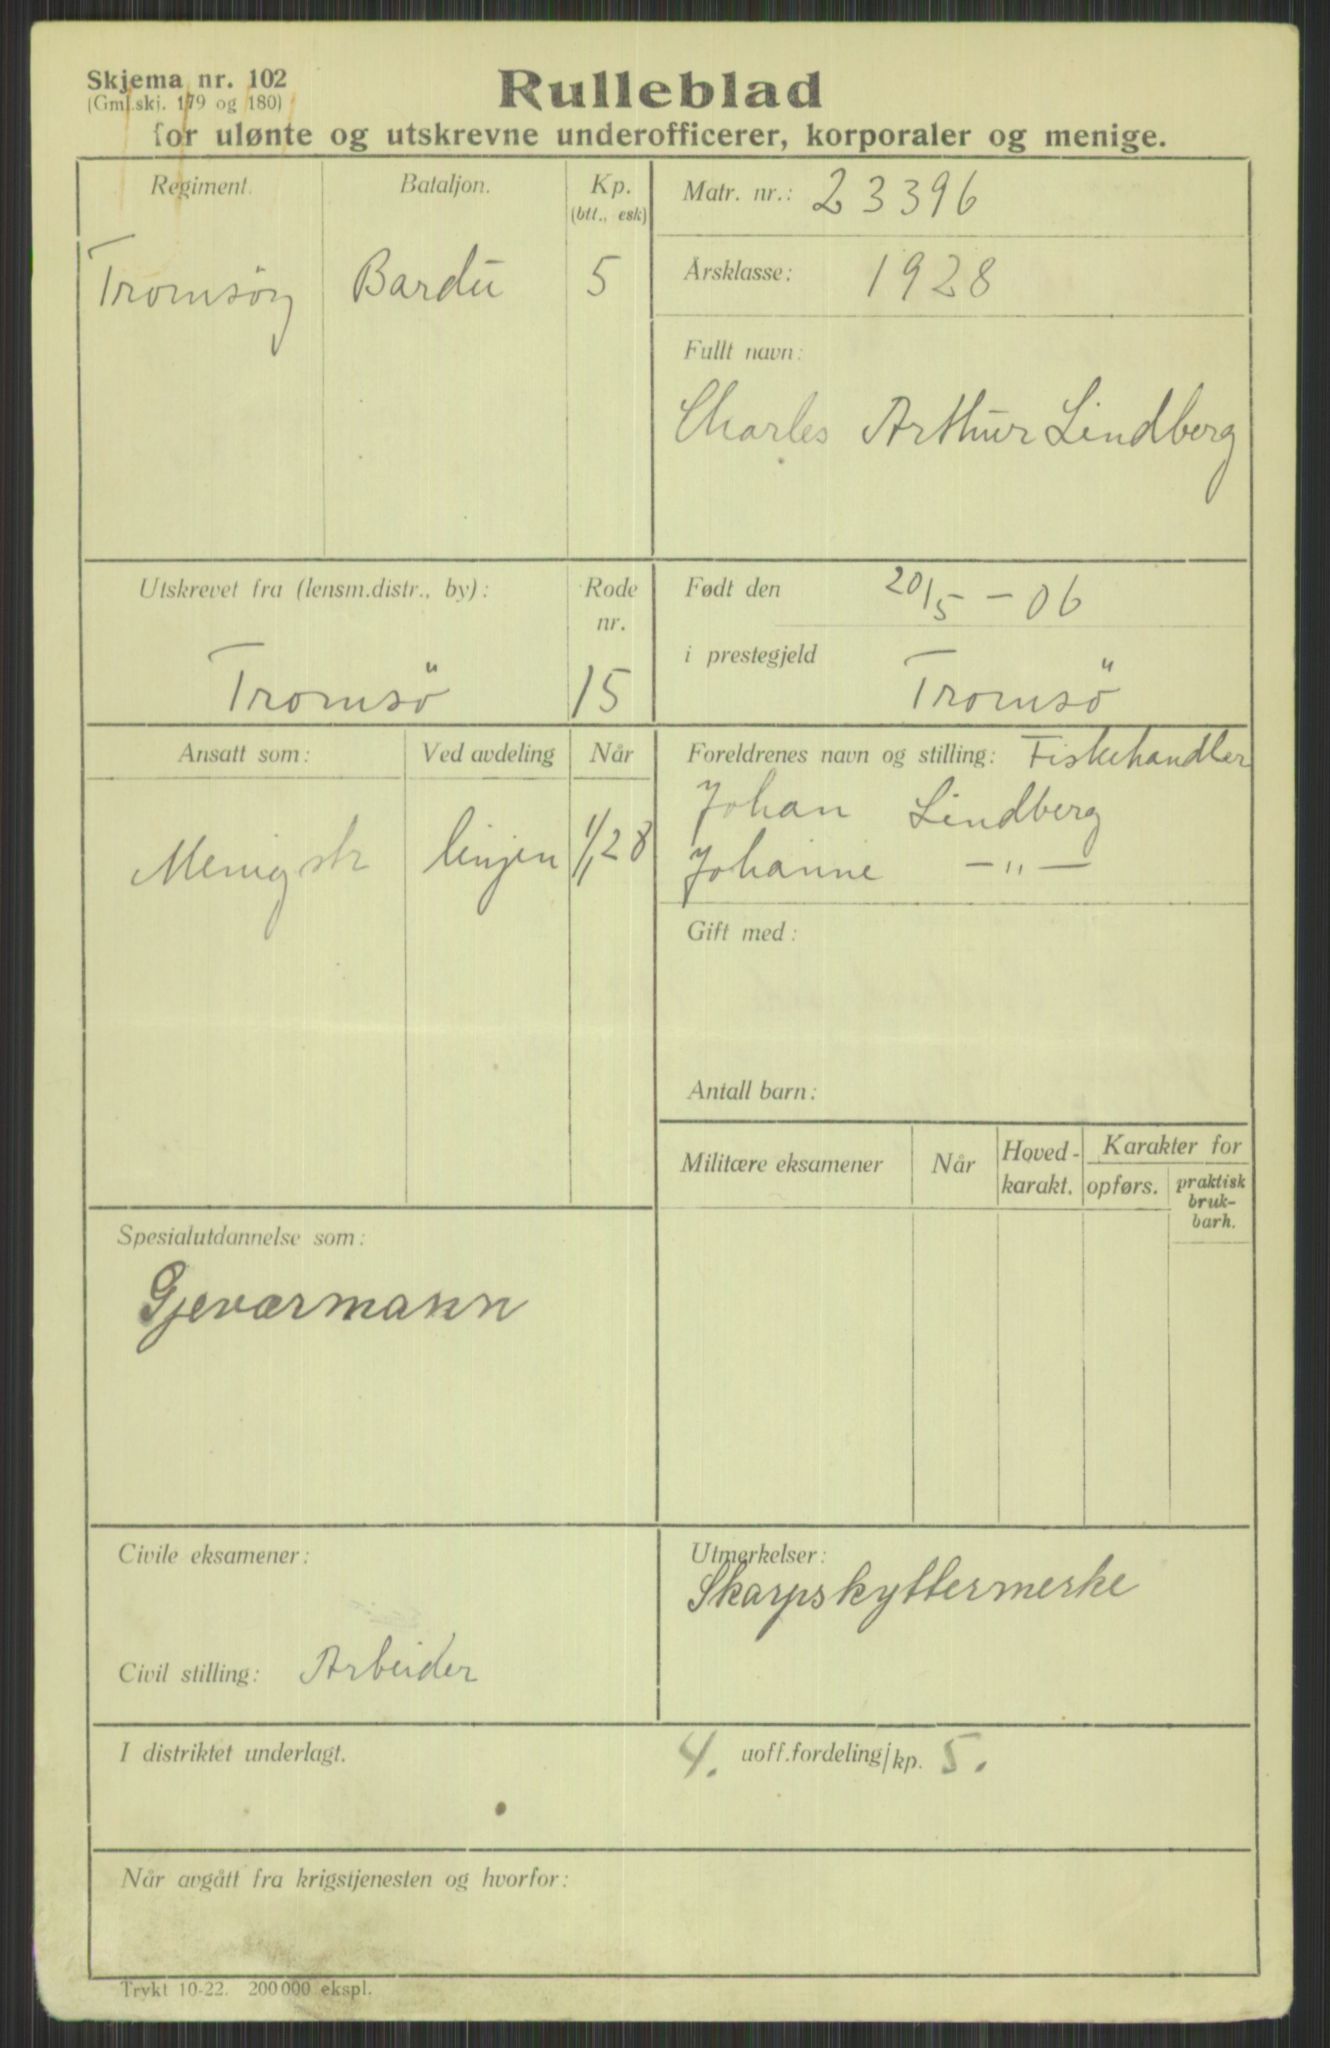 Skjema nr. 102
(Gml.skj. 179 og 180)
Rulleblad
for ulønte og utskrevne underofficerer, korporaler og menige.
Regiment.
Tromsörg
Bataljon.
Bardu
Kp.
(btt., esk)
5
Matr. nr.: 23396
Årsklasse: 1928
Fullt navn:
Charles Arthur Lindberg
Utskrevet fra (lensm.distr., by):
Tromsö
Rode
nr.
15
Født den 20/5 - 06
i prestegjeld Tromsö
Ansatt som:
Menig
Ved avdeling
linjen
Når
1/1 28
Foreldrenes navn og stilling: Fiskehandler
Johan Lindberg
Johanne - " -
Gift med:
Antall barn:
Militære eksamener
Når
Hoved-
karakt.
Karakter for
opførs.
praktisk
bruk-
barh.
Spesialutdannelse som:
Gjeværmann
Civile eksamener:
Civil stilling: Arbeider
Utmerkelser:
Skarpskyttermerke
I distriktet underlagt.
4. uoff.fordeling/kp. 5.
Når avgått fra krigstjenesten og hvorfor:
Trykt 10-22. 200 000 ekspl.